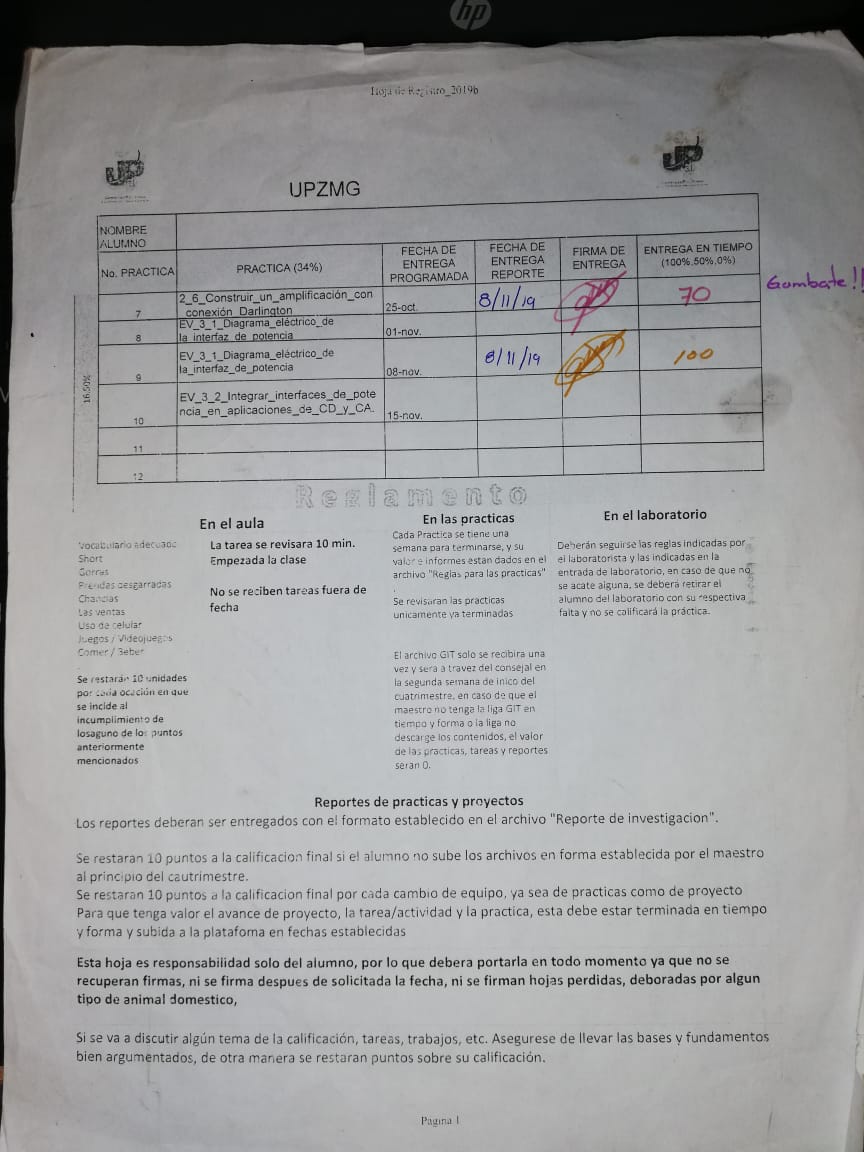 hp
Hoja de Registro_2019b
UP UP
UPZMG
NOMBRE
ALUMNO
No. PRACTICA
PRACTICA (34%)
FECHA DE
ENTREGA
PROGRAMADA
FECHA DE
ENTREGA
REPORTE
FIRMA DE
ENTREGA
ENTREGA EN TIEMPO
(100%,50%,0%)
16.50%
7
2_6_Construir_un_amplificación_con
_conexión_Darlington
25-oct.
8/11/19
70
Gambate!!
8
EV_3_1_Diagrama_eléctrico_de
la_interfaz_de_potencia
01-nov.
9
EV_3_1_Diagrama_eléctrico_de
la_interfaz_de_potencia
08-nov.
8/11/19
100
10
EV_3_2_Integrar_interfaces_de_pote
ncia_en_aplicaciones_de_CD_y_CA.
15-nov.
11
12
Reglamento
En el aula
Vocabulario adecuado
Short
Gorras
Prendas desgarradas
Chanclas
Las ventas
Uso de celular
Juegos / Videojuegos
Comer / Beber
Se restarán 10 unidades
por cada ocación en que
se incide al
incumplimiento de
losaguno de los puntos
anteriormente
mencionados
La tarea se revisara 10 min.
Empezada la clase
No se reciben tareas fuera de
fecha
En las practicas
Cada Practica se tiene una
semana para terminarse, y su
valor e informes estan dados en el
archivo "Reglas para las practicas"
.
Se revisaran las practicas
unicamente ya terminadas
El archivo GIT solo se recibira una
vez y sera a travez del consejal en
la segunda semana de inico del
cuatrimestre, en caso de que el
maestro no tenga la liga GIT en
tiempo y forma o la liga no
descarge los contenidos, el valor
de las practicas, tareas y reportes
seran 0.
En el laboratorio
Deberán seguirse las reglas indicadas por
el laboratorista y las indicadas en la
entrada de laboratorio, en caso de que no
se acate alguna, se deberá retirar el
alumno del laboratorio con su respectiva
falta y no se calificará la práctica.
Reportes de practicas y proyectos
Los reportes deberan ser entregados con el formato establecido en el archivo "Reporte de investigacion".
Se restaran 10 puntos a la calificacion final si el alumno no sube los archivos en forma establecida por el maestro
al principio del cautrimestre.
Se restaran 10 puntos a la calificacion final por cada cambio de equipo, ya sea de practicas como de proyecto
Para que tenga valor el avance de proyecto, la tarea/actividad y la practica, esta debe estar terminada en tiempo
y forma y subida a la platafoma en fechas establecidas
Esta hoja es responsabilidad solo del alumno, por lo que debera portarla en todo momento ya que no se
recuperan firmas, ni se firma despues de solicitada la fecha, ni se firman hojas perdidas, deboradas por algun
tipo de animal domestico,
Si se va a discutir algún tema de la calificación, tareas, trabajos, etc. Asegurese de llevar las bases y fundamentos
bien argumentados, de otra manera se restaran puntos sobre su calificación.
Pagina 1